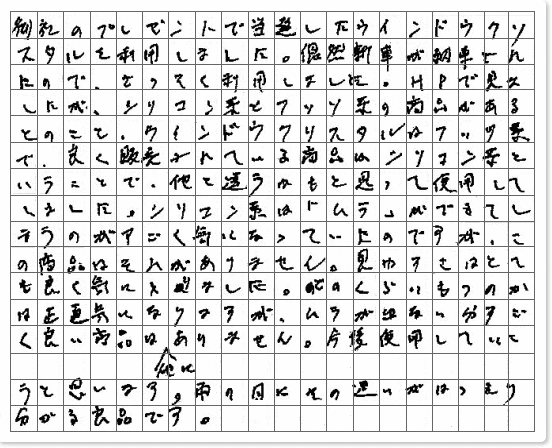 御社のプレゼントで当選したウインドウクリ
スタルを利用しました。偶然新車が納車され
たので、さっそく利用しました。HPで見ま
したが、シリコン系とフッソ系の商品がある
とのこと。ウインドウクリスタルはフッソ系
で、良く販売されている商品はシリコン系と
いうことで、他と違うかもと思って使用して
しました。シリコン系はドムラ、ができてし
まうのがすごく気になっていたのですが、こ
の商品はそれがありません。見やすさはとて
も良く気に入りました。どのくらいもつのか
は正直気になりますが、ムラが出ない分すご
く良い商品は他にありません。今後使用していこ
うと思います。雨の日にその違いがはっきり
分かる良品です。